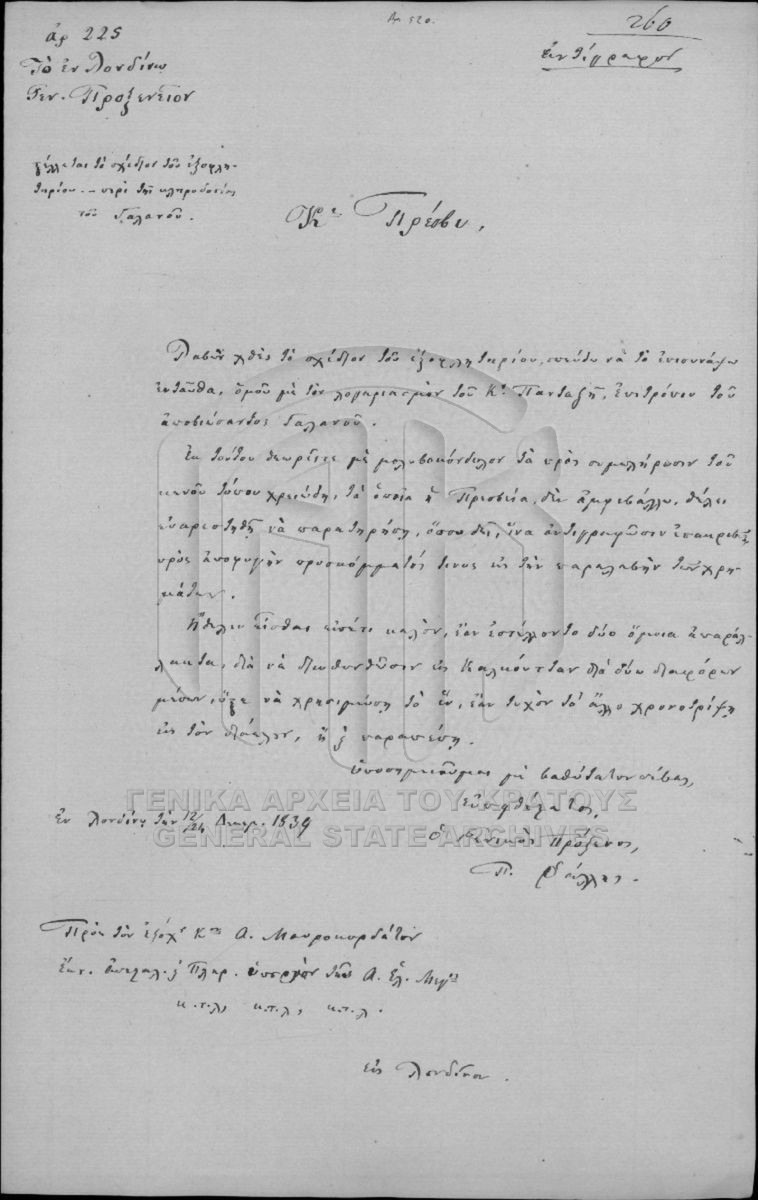 Αρ 520.
260
ἀρ 225
ἀντίγραφον
Τὸ ἐν Λονδίνῳ
Γεν. Προξενεῖον
στέλλεται τὸ σχέδιον τοῦ ἐξοφλη-
τηρίου περὶ τῆς κληροδοσίας
τοῦ Γαλανοῦ.
Κε Πρέσβυ,
Λαβὼν χθὲς τὸ σχέδιον τοῦ ἐξοφλητηρίου, σπεύδω νὰ τὸ ἐπισυνάψω
ἐνταῦθα, ὁμοῦ μὲ τὸν λογαριασμὸν τοῦ Κυ Πανταζῆ, ἐπιτρόπου τοῦ
ἀποβιώσαντος Γαλανοῦ.
Ἐκ τούτου θεωρεῖτε μὲ μολυβοκόνδυλον τὰ πρὸς συμπλήρωσιν τοῦ
κενοῦ τόπου χρειώδη, τὰ ὁποῖα ἡ Πρεσβεία, δὲν ἀμφιβάλλω, θέλει
εὐαρεστηθῆ νὰ παρατηρήση, ὅσον δεῖ, ἵνα ἀντιγραφῶσιν ἐπακριβῶς
πρὸς ἀποφυγὴν προσκόμματός τινος εἰς τὴν παραλαβὴν τῶν χρη-
μάτων.
Ἤθελεν εἶσθαι εἰσέτι καλὸν, ἐὰν ἐστέλλοντο δύο ὅμοια ἀπαράλ-
λακτα, διὰ νὰ διευθυνθῶσιν εἰς Καλκούτταν διὰ δύο διαφόρων
μέσων, ὥστε νὰ χρησιμεύση τὸ ἓν, ἐὰν τυχὸν τὸ ἄλλο χρονοτρίψη
εἰς τὸν διάπλουν, ἢ παραπέση.
ὑποσημειοῦμαι μὲ βαθύτατον σέβας,
Εὐπειθέστατος,
Ἐν Λονδίνῳ τὴν 12/24 Δεκεμ. 1839
ὁ Γενικὸς Πρόξενος,
Π. Ῥάλλης.
Πρὸς τὸν ἐξοχ. Κον Α. Μαυροκορδάτον
ἔκτ. ἀπεσταλ. καὶ Πληρ. ὑπουργὸν τῆς Α. Ἑλ. Μεγ
κ.τ.λ, κ.τ.λ, κ.τ.λ.
εἰς Λονδίνον.
ΓΕΝΙΚΑ ΑΡΧΕΙΑ ΤΟΥ ΚΡΑΤΟΥΣ
GENERAL STATE ARCHIVES